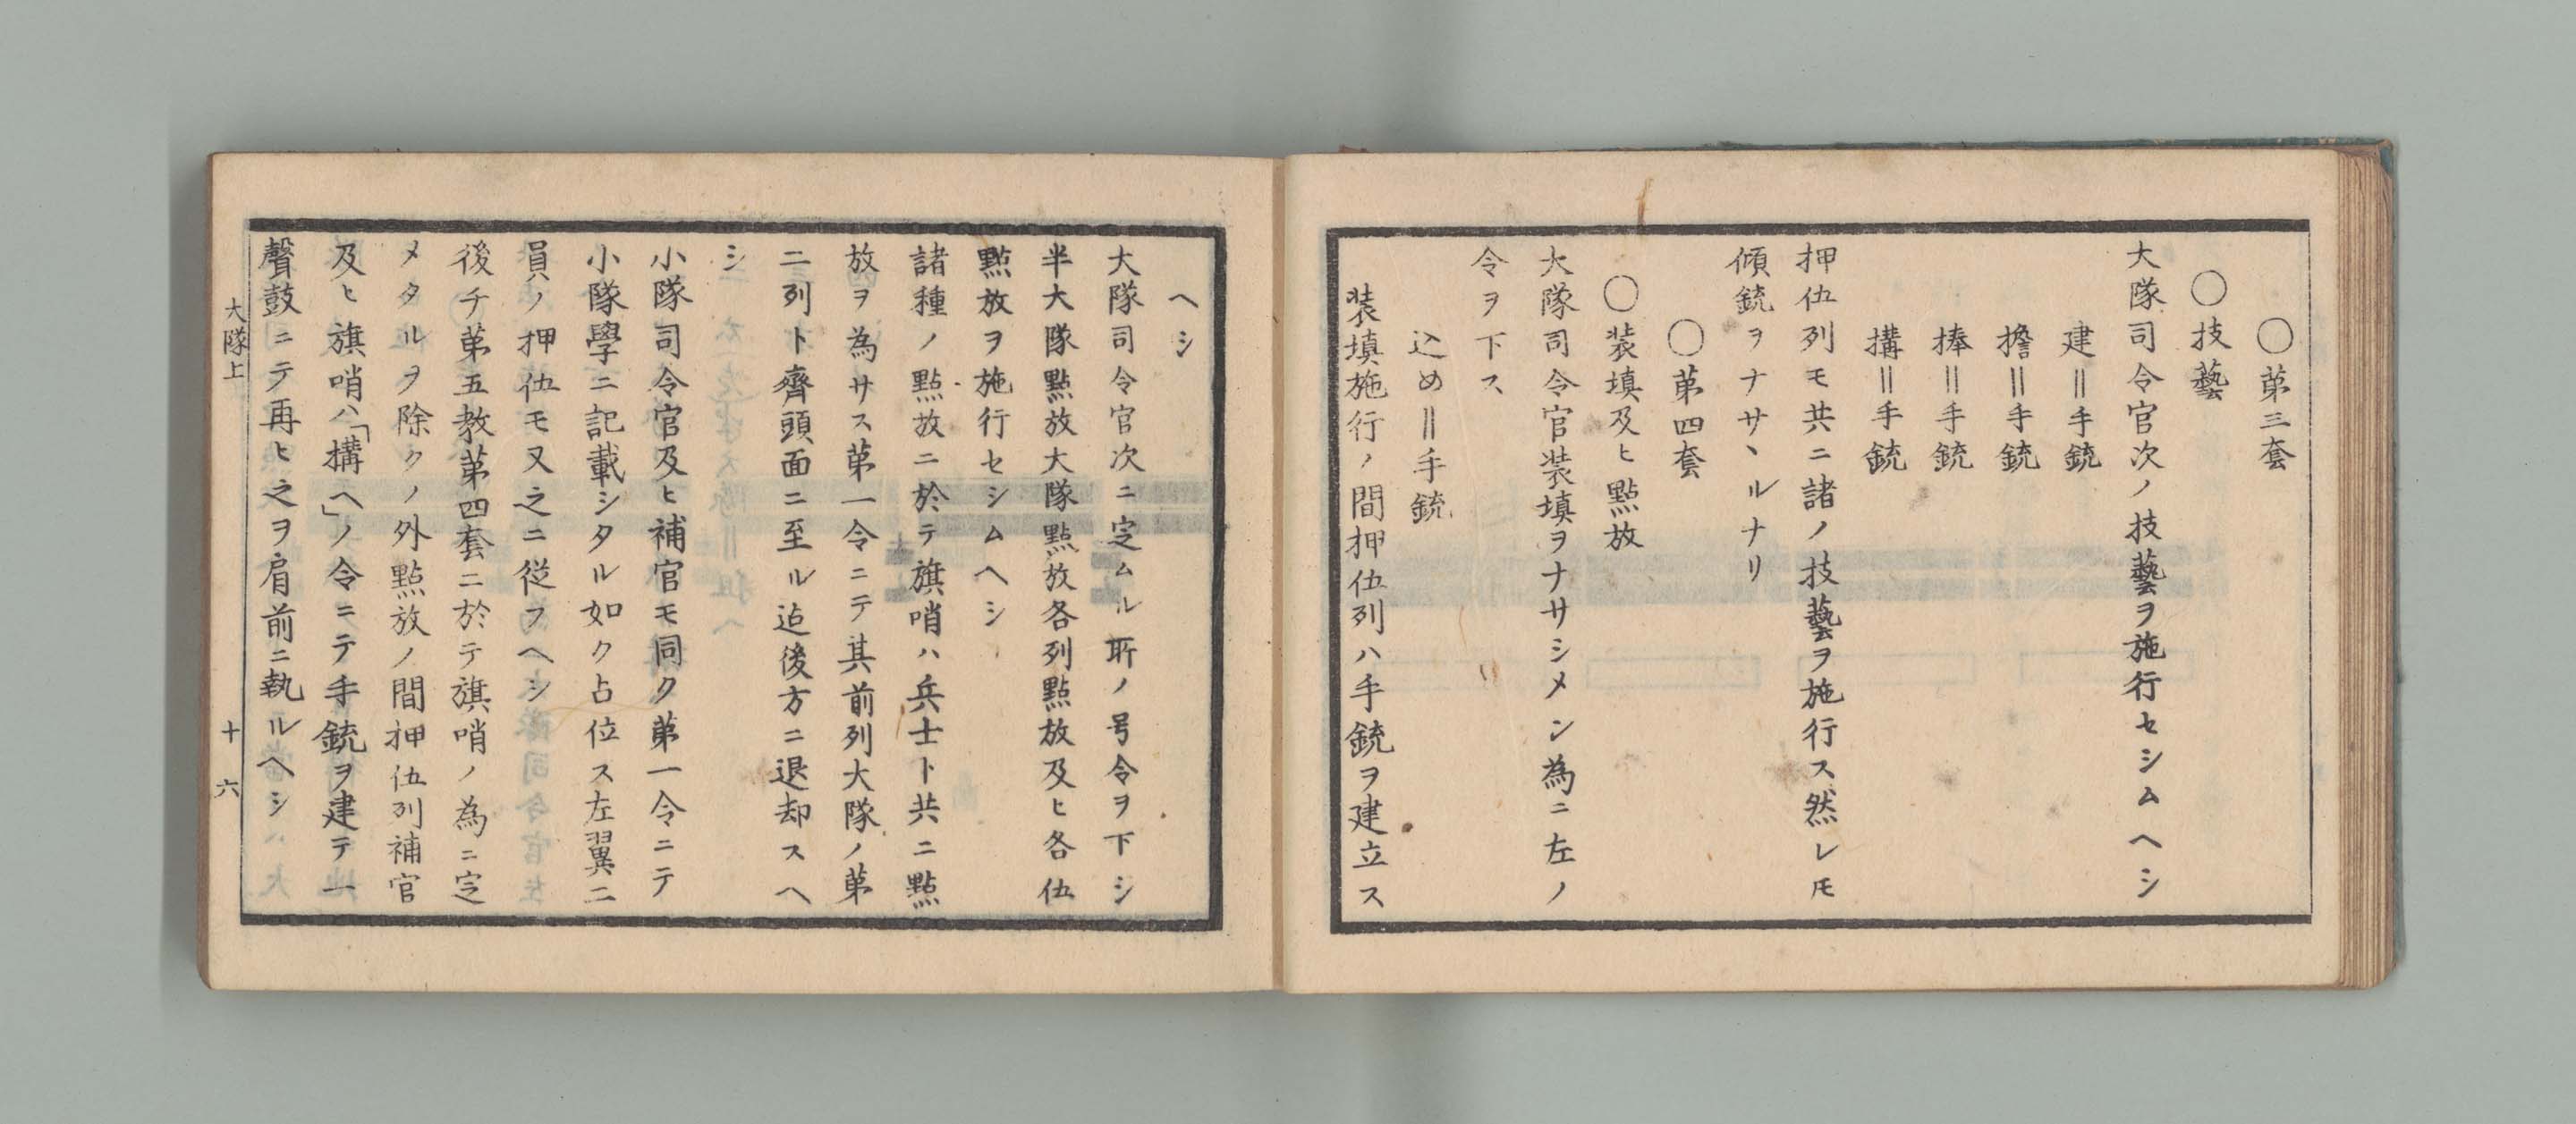 〇第三套
〇技藝
大隊司令官次ノ技藝ヲ施行セシムヘシ
建＝手銃
擔＝手銃
捧＝手銃
搆＝手銃
押伍列モ共ニ諸ノ技藝ヲ施行ス然レ𪜈
傾銃ヲナサヽルナリ
〇第四套
〇装填及ヒ點放
大隊司令官装填ヲナサシメン為ニ左ノ
令ヲ下ス
込め＝手銃
装填施行ノ間押伍列ハ手銃ヲ建立ス
ヘシ
大隊司令官次ニ定ムル所ノ号令ヲ下シ
半大隊點放大隊點放各列點放及ヒ各伍
點放ヲ施行セシムヘシ
諸種ノ點放ニ於テ旗哨ハ兵士ト共ニ點
放ヲ為サス第一令ニテ其前列大隊ノ第
二列ト齊頭面ニ至ル迠後方ニ退却スヘ
シ
小隊司令官及ヒ補官モ同ク第一令ニテ
小隊學ニ記載シタル如ク占位ス左翼ニ
員ハノ押伍モ又之ニ従フヘシ
後チ第五教第四套ニ於テ旗哨ノ為ニ定
メタルヲ除クノ外點放ノ間押伍列補官
及ヒ旗哨ハ「搆ヘ」ノ令ニテ手銃ヲ建テ一
聲鼓ニテ再ヒ之ヲ肩前ニ執ルヘシ
大隊上
十六